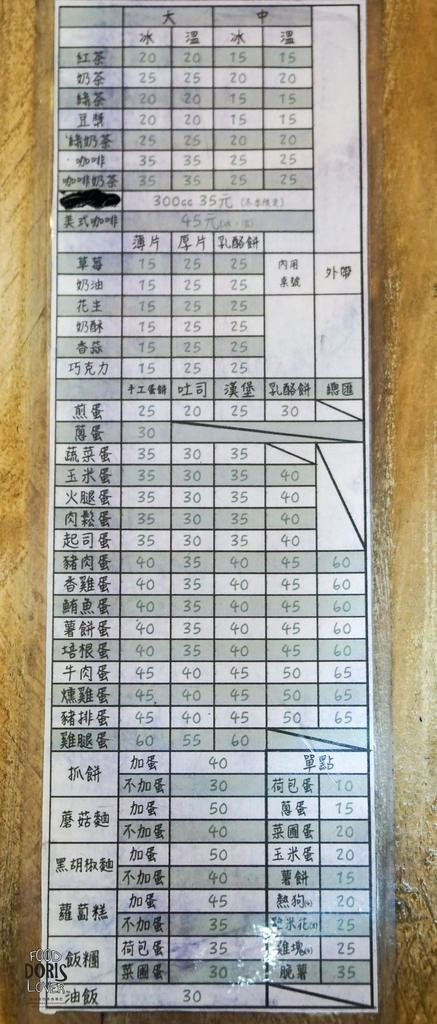 大 中
冰 溫 冰 溫
紅茶 20 20 15 15
奶茶 25 25 20 20
綠茶 20 20 15 15
豆漿 20 20 15 15
綠奶茶 25 25 20 20
咖啡 35 35 25 25
咖啡奶茶 35 35 25 25
300cc 35元
美式咖啡 45元
薄片 厚片 乳酪餅
草莓 15 25 25 內用桌號 外帶
奶油 15 25 25
花生 15 25 25
奶酥 15 25 25
香蒜 15 25 25
巧克力 15 25 25
手工蛋餅 吐司 漢堡 乳酪餅 總匯
煎蛋 25 20 25 30
蔥蛋 30
蔬菜蛋 35 30 35
玉米蛋 35 30 35 40
火腿蛋 35 30 35 40
肉鬆蛋 35 30 35 40
起司蛋 35 30 35 40
豬肉蛋 40 35 40 45 60
香雞蛋 40 35 40 45 60
鮪魚蛋 40 35 40 45 60
薯餅蛋 40 35 40 45 60
培根蛋 40 35 40 45 60
牛肉蛋 45 40 45 50 65
燻雞蛋 45 40 45 50 65
豬排蛋 45 40 45 50 65
雞腿蛋 60 55 60
抓餅 加蛋 40 單點
不加蛋 30 荷包蛋 10
蘑菇麵 加蛋 50 蔥蛋 15
不加蛋 40 菜圃蛋 20
黑胡椒麵 加蛋 50 玉米蛋 20
不加蛋 40 薯餅 15
蘿蔔糕 加蛋 45 熱狗 20
不加蛋 35 雞米花 25
飯糰 荷包蛋 35 雞塊 25
菜圃蛋 30 脆薯 35
油飯 30
FOOD
DORIS
LOVER